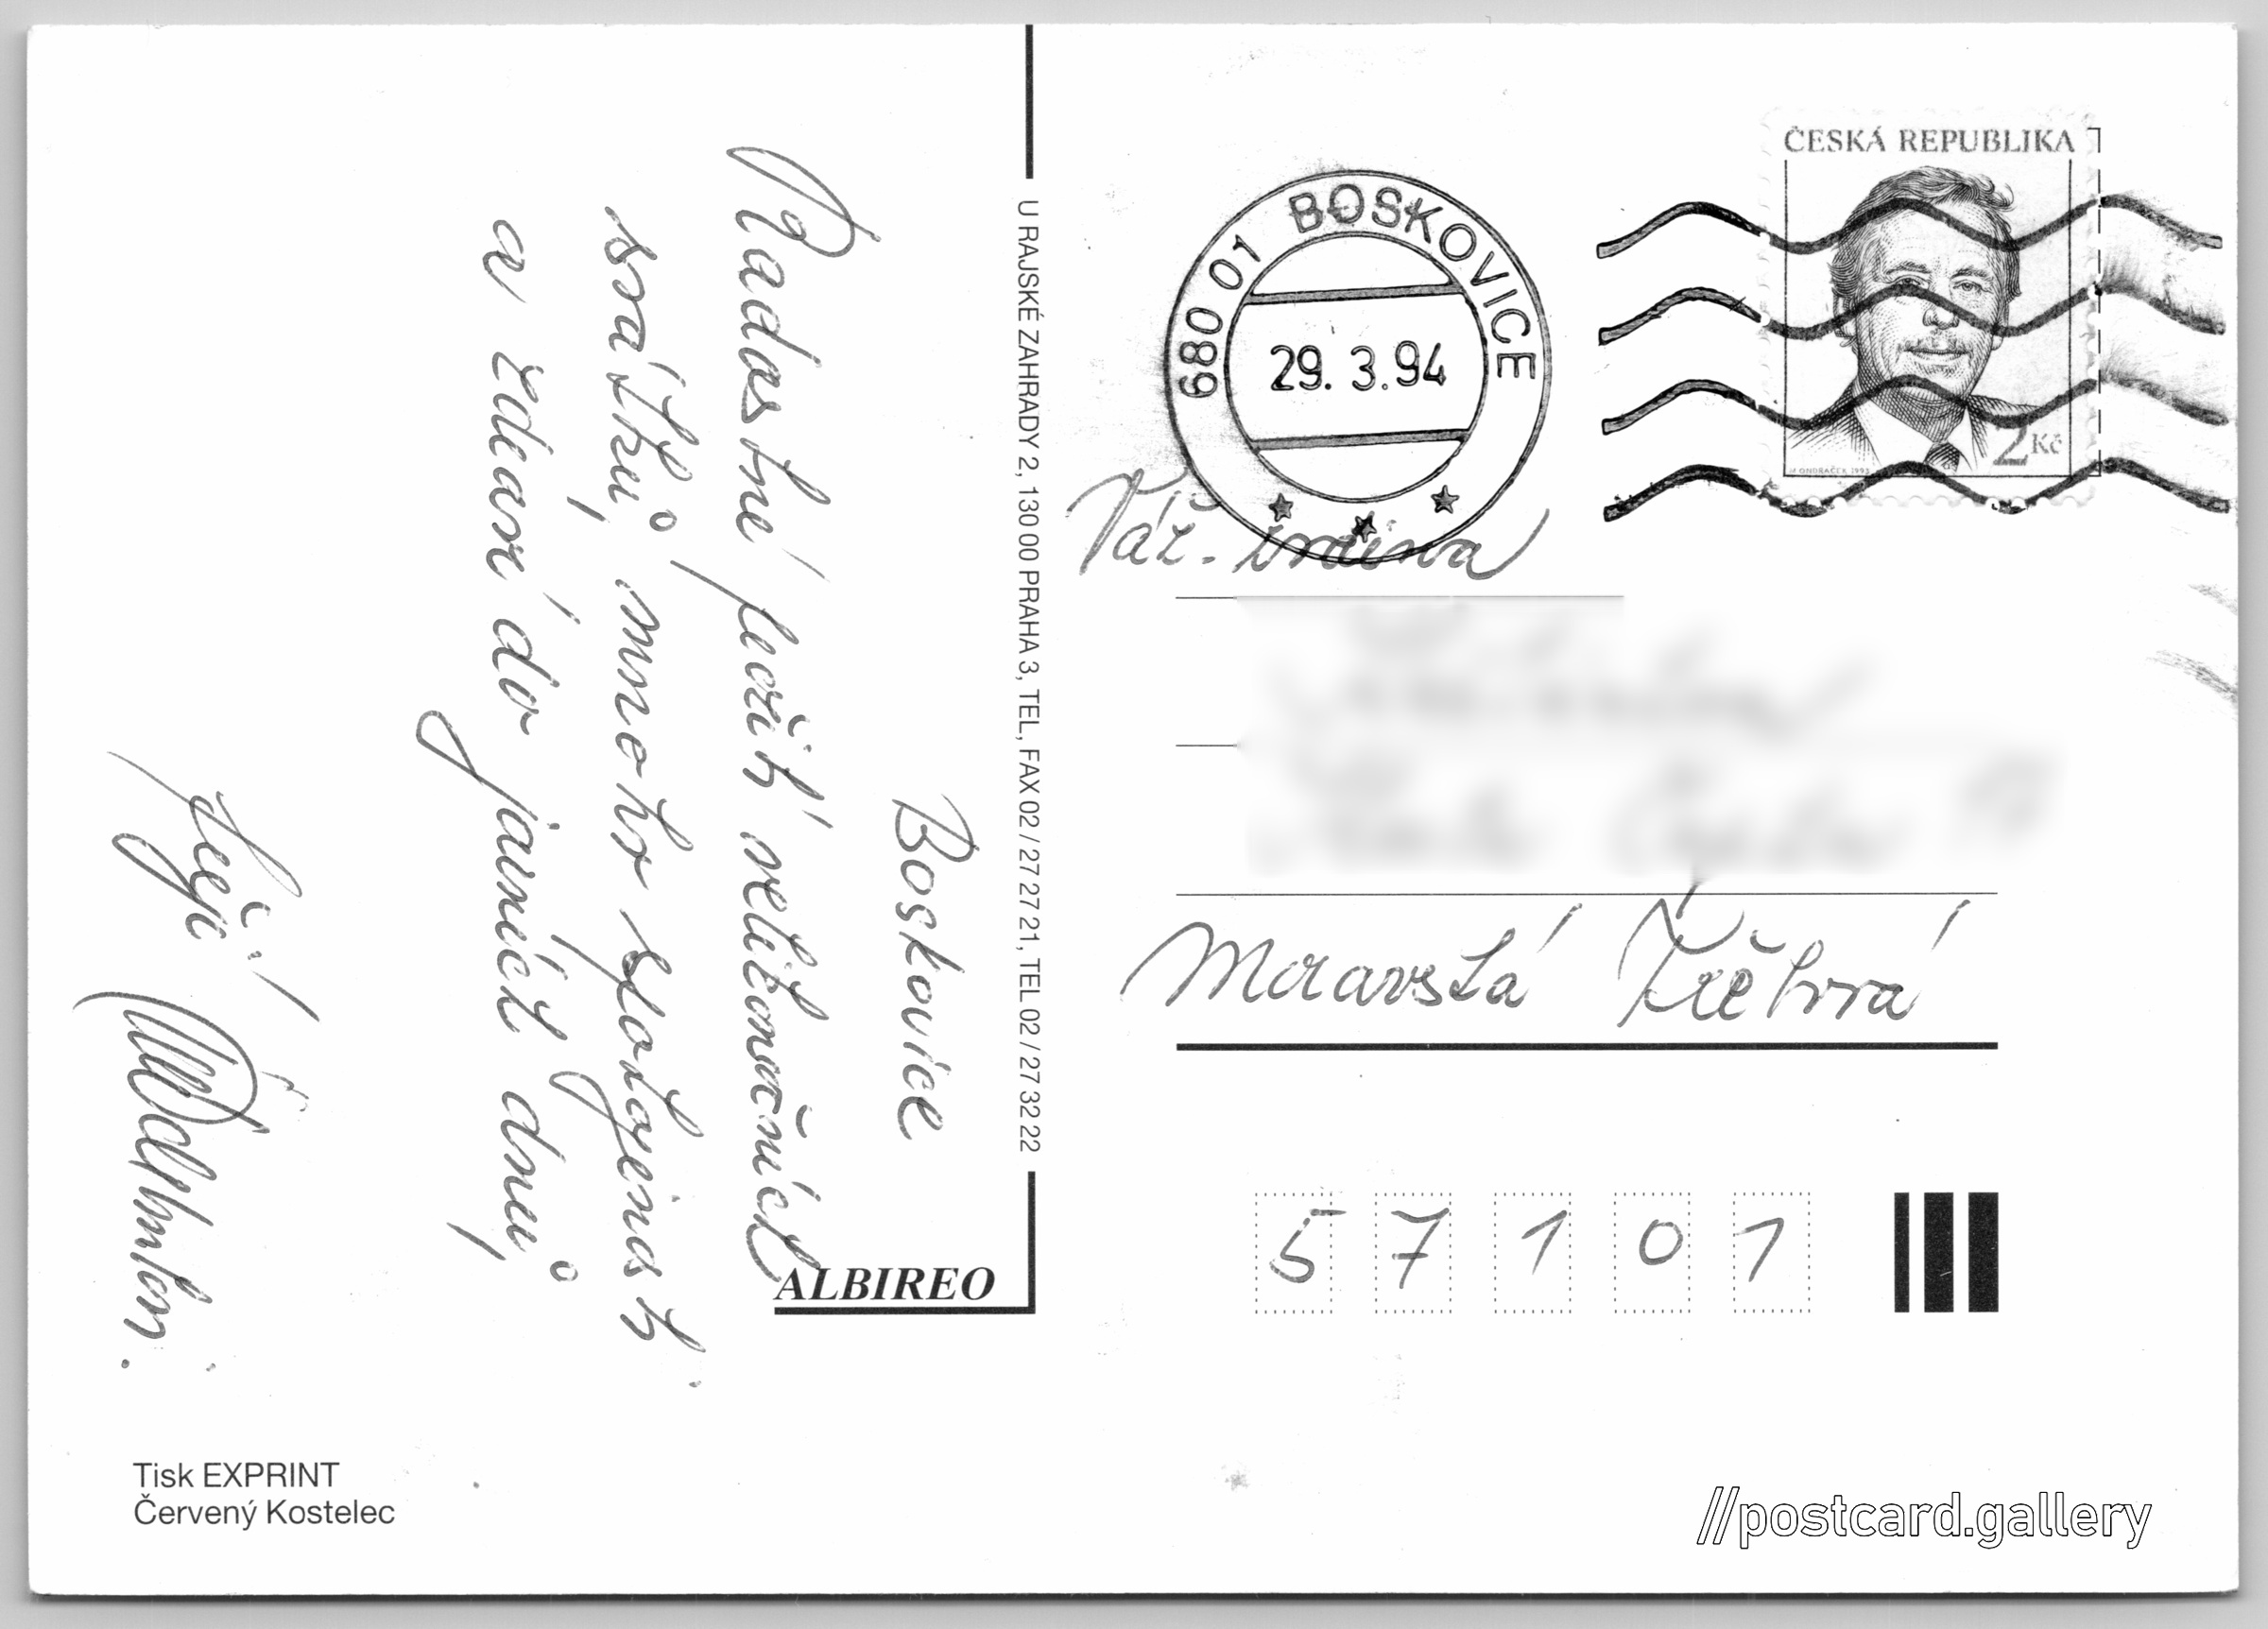 Boskovice
Radostné prožití velikonočních
svátků, mnoho spokojenosti
a zdraví do jarních dnů
přejí
U RAJSKÉ ZAHRADY 2, 130 00 PRAHA 3, TEL, FAX 02 / 27 27 21, TEL 02 / 27 32 22
ALBIREO
Tisk EXPRINT
Červený Kostelec
ČESKÁ REPUBLIKA
2 Kč
M ONDRÁČEK 1993
680 01 BOSKOVICE
29. 3. 94
Váž. rodina
Moravská Třebová
5 7 1 0 1
//postcard.gallery